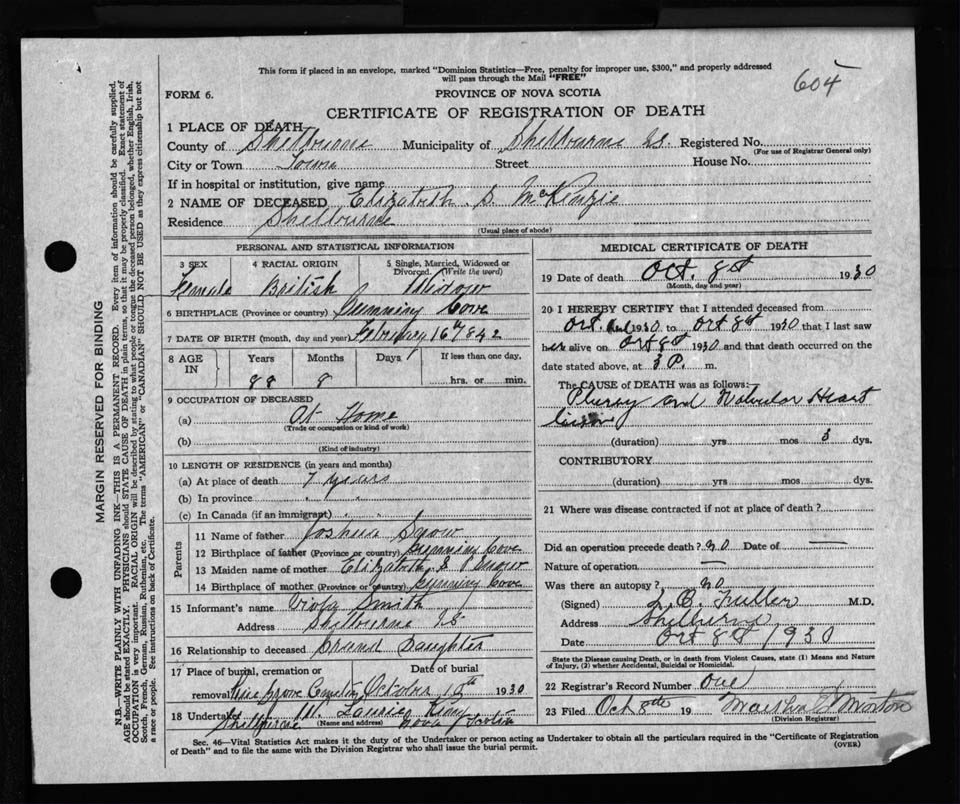 This form if placed in an envelope, marked "Dominion Statistics—Free, penalty for improper use, $300," and properly addressed
will pass through the Mail "FREE"
604
FORM 6.
PROVINCE OF NOVA SCOTIA
CERTIFICATE OF REGISTRATION OF DEATH
1 PLACE OF DEATH
County of Shelburne Municipality of Shelburne Registered No.
(For use of Registrar General only)
City or Town Town Street House No.
If in hospital or institution, give name
2 NAME OF DECEASED Elizabeth S. McKenzie
Residence Shelburne
(Usual place of abode)
PERSONAL AND STATISTICAL INFORMATION
3 SEX 4 RACIAL ORIGIN 5 Single, Married, Widowed or Divorced. (Write the word)
Female British Widow
6 BIRTHPLACE (Province or country) Cove
7 DATE OF BIRTH (month, day and year) February 16th 1842
8 AGE IN Years Months Days If less than one day.
88 8 hrs. or min.
9 OCCUPATION OF DECEASED
(a) At Home
(Trade or occupation or kind of work)
(b)
(Kind of industry)
10 LENGTH OF RESIDENCE (in years and months)
(a) At place of death 7 years
(b) In province " "
(c) In Canada (if an immigrant) " "
Parents
11 Name of father Joshua Snow
12 Birthplace of father (Province or country) Cove
13 Maiden name of mother Elizabeth Snow
14 Birthplace of mother (Province or country) Cove
15 Informant's name Viola Smith
Address Shelburne NS
16 Relationship to deceased Grand Daughter
17 Place of burial, cremation or removal Pine Grove Cemetery Date of burial October 10th 1930
18 Undertaker King
(Name and address)
Shelburne Nova Scotia
MEDICAL CERTIFICATE OF DEATH
19 Date of death Oct. 8th 1930
(Month, day and year)
20 I HEREBY CERTIFY that I attended deceased from
Oct. 1930 to Oct 8th 1930 that I last saw
her alive on Oct 8th 1930 and that death occurred on the
date stated above, at 3 P. m.
The CAUSE OF DEATH was as follows:
Plursy and Valvular Heart
(duration) yrs mos 3 dys.
CONTRIBUTORY
(duration) yrs. mos. dys.
21 Where was disease contracted if not at place of death?
Did an operation precede death? no Date of —
Nature of operation —
Was there an autopsy? no
(Signed) L. O. Fuller M.D.
Address Shelburne
Date Oct 8th 1930
State the Disease causing Death, or in death from Violent Causes, state (1) Means and Nature of Injury, (2) whether Accidental, Suicidal or Homicidal.
22 Registrar's Record Number one
23 Filed Oct 8th 19 Morton
(Division Registrar)
Sec. 46—Vital Statistics Act makes it the duty of the Undertaker or person acting as Undertaker to obtain all the particulars required in the "Certificate of Registration
of Death" and to file the same with the Division Registrar who shall issue the burial permit.
(OVER)
MARGIN RESERVED FOR BINDING
N.B.—WRITE PLAINLY WITH UNFADING INK—THIS IS A PERMANENT RECORD. Every item of information should be carefully supplied.
AGE should be stated EXACTLY. PHYSICIANS should STATE CAUSE OF DEATH in plain terms, so that it may be properly classified. Exact statement of
OCCUPATION is very important. RACIAL ORIGIN will be described by stating to what people or tongue the deceased person belonged, whether English, Irish,
Scotch, French, German, Russian, Ruthenian, etc. The terms "AMERICAN" or "CANADIAN" SHOULD NOT BE USED as they express citizenship but not
a race or people. See instructions on back of Certificate.